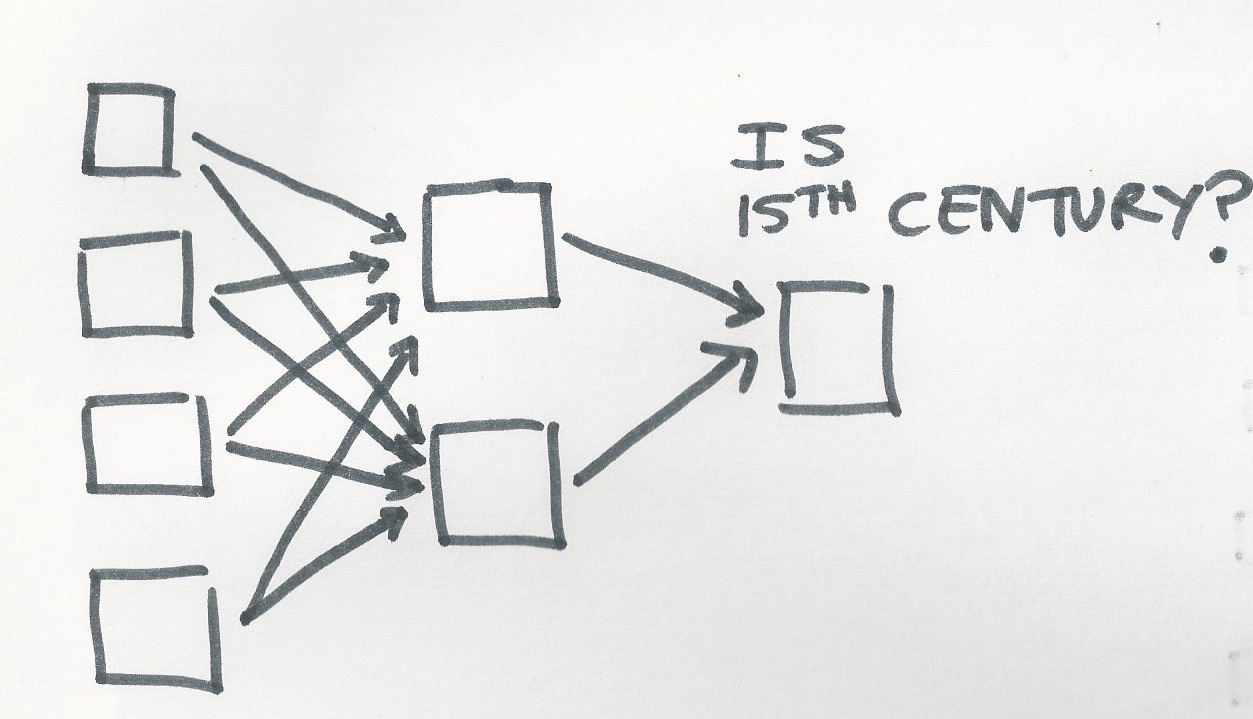 IS
15TH CENTURY?